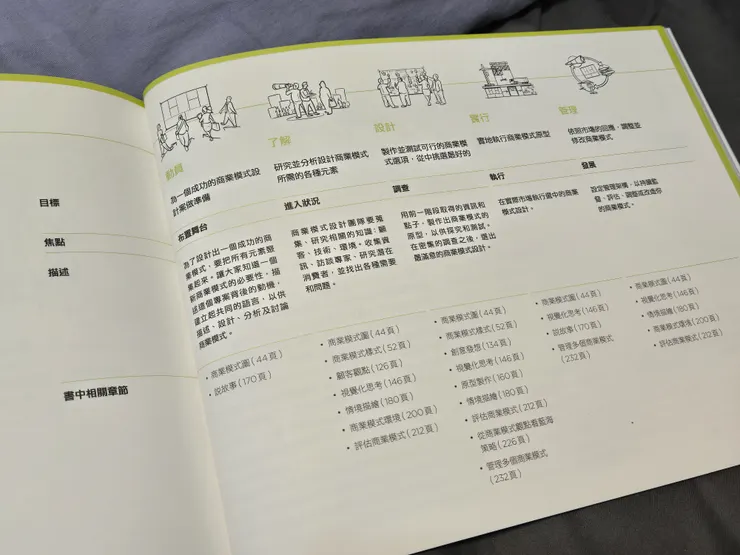 目標
焦點
描述
書中相關章節
動員
為一個成功的商業模式設
計案做準備
布置舞台
為了設計出一個成功的商
業模式，要把所有元素聚
集起來。讓大家知道一個
新商業模式的必要性，描
述這個專案背後的動機，
建立起共同的語言，以供
描述、設計、分析及討論
商業模式。
• 商業模式圖(44頁)
• 說故事(170頁)
了解
研究並分析設計商業模式
所需的各種元素
進入狀況
商業模式設計團隊要蒐
集、研究相關的知識：顧
客、技術、環境。收集資
訊、訪談專家、研究潛在
消費者，並找出各種需要
和問題。
• 商業模式圖(44頁)
• 商業模式樣式(52頁)
• 顧客觀點(126頁)
• 視覺化思考(146頁)
• 情境描繪(180頁)
• 商業模式環境(200頁)
• 評估商業模式(212頁)
設計
製作並測試可行的商業模
式選項，從中挑選最好的
調查
用前一階段取得的資訊和
點子，製作出商業模式的
原型，以供探究和測試。
在密集的調查之後，選出
最滿意的商業模式設計。
• 商業模式圖(44頁)
• 商業模式樣式(52頁)
• 創意發想(134頁)
• 視覺化思考(146頁)
• 原型製作(160頁)
• 情境描繪(180頁)
• 評估商業模式(212頁)
• 從商業模式觀點看藍海
策略(226頁)
• 管理多個商業模式
(232頁)
實行
實地執行商業模式原型
執行
在實際市場執行選中的商業
模式設計。
• 商業模式圖(44頁)
• 視覺化思考(146頁)
• 說故事(170頁)
• 管理多個商業模式
(232頁)
管理
依照市場的回應，調整並
修改商業模式
發展
設定管理架構，以持續監
督、評估、調整或改造你
的商業模式。
• 商業模式圖(44頁)
• 視覺化思考(146頁)
• 情境描繪(180頁)
• 商業模式環境(200頁)
• 評估商業模式(212頁)